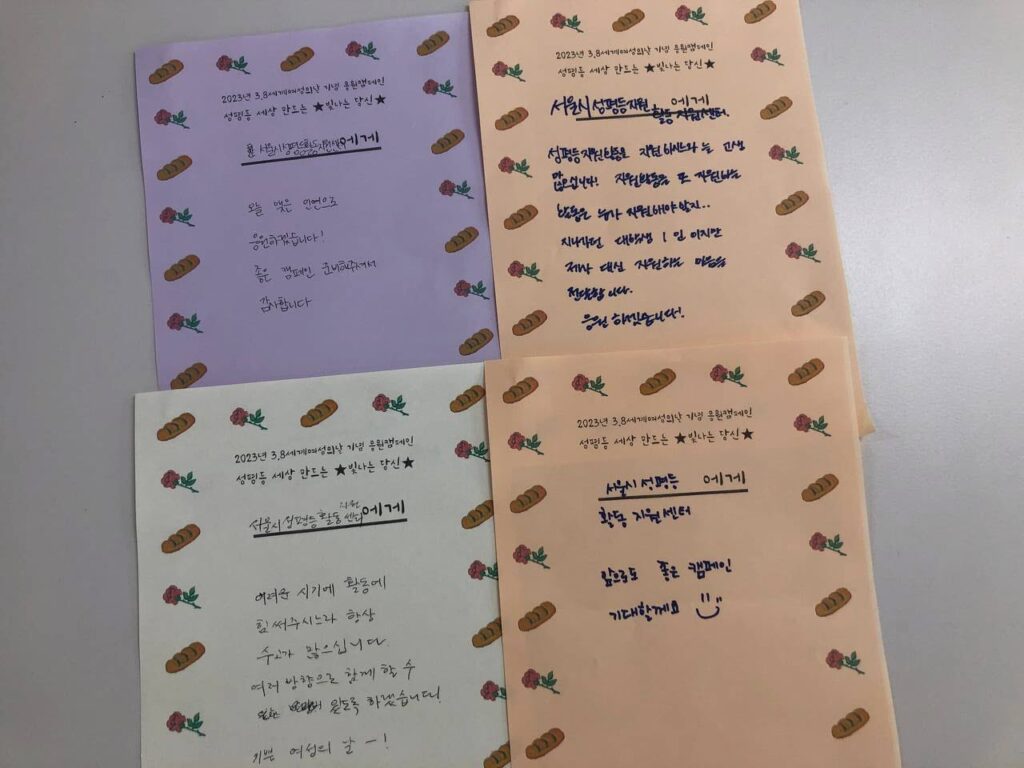 2023년 3.8세계여성의날 기념 응원캠페인
성평등 세상 만드는 ★빛나는 당신★
서울시성평등활동지원센터에게
오늘 맺은 인연으로
응원하겠습니다!
좋은 캠페인 준비해주셔서
감사합니다
2023년 3.8세계여성의날 기념 응원캠페인
성평등 세상 만드는 ★빛나는 당신★
서울시 성평등지원 에게
활동 지원센터.
성평등지원활동을 지원하시느라 늘 고생
많으십니다! 지원활동을 또 지원하는
활동은 누가 지원해야할지..
지나가던 대학생 1인 이지만
제사 대신 지원하는 마음을
전달합니다.
응원 하겠습니다!
2023년 3.8세계여성의날 기념 응원캠페인
성평등 세상 만드는 ★빛나는 당신★
지원
서울시 성평등활동 센터에게
어려운 시기에 활동에
힘써주시느라 항상
수고가 많으십니다.
여러 방향으로 함께 할 수
있도록 하겠습니다!
기쁜 여성의 날 -!
2023년 3.8세계여성의날 기념 응원캠페인
성평등 세상 만드는 ★빛나는 당신★
서울시 성평등 에게
활동 지원센터
앞으로도 좋은 캠페인
기대할께요